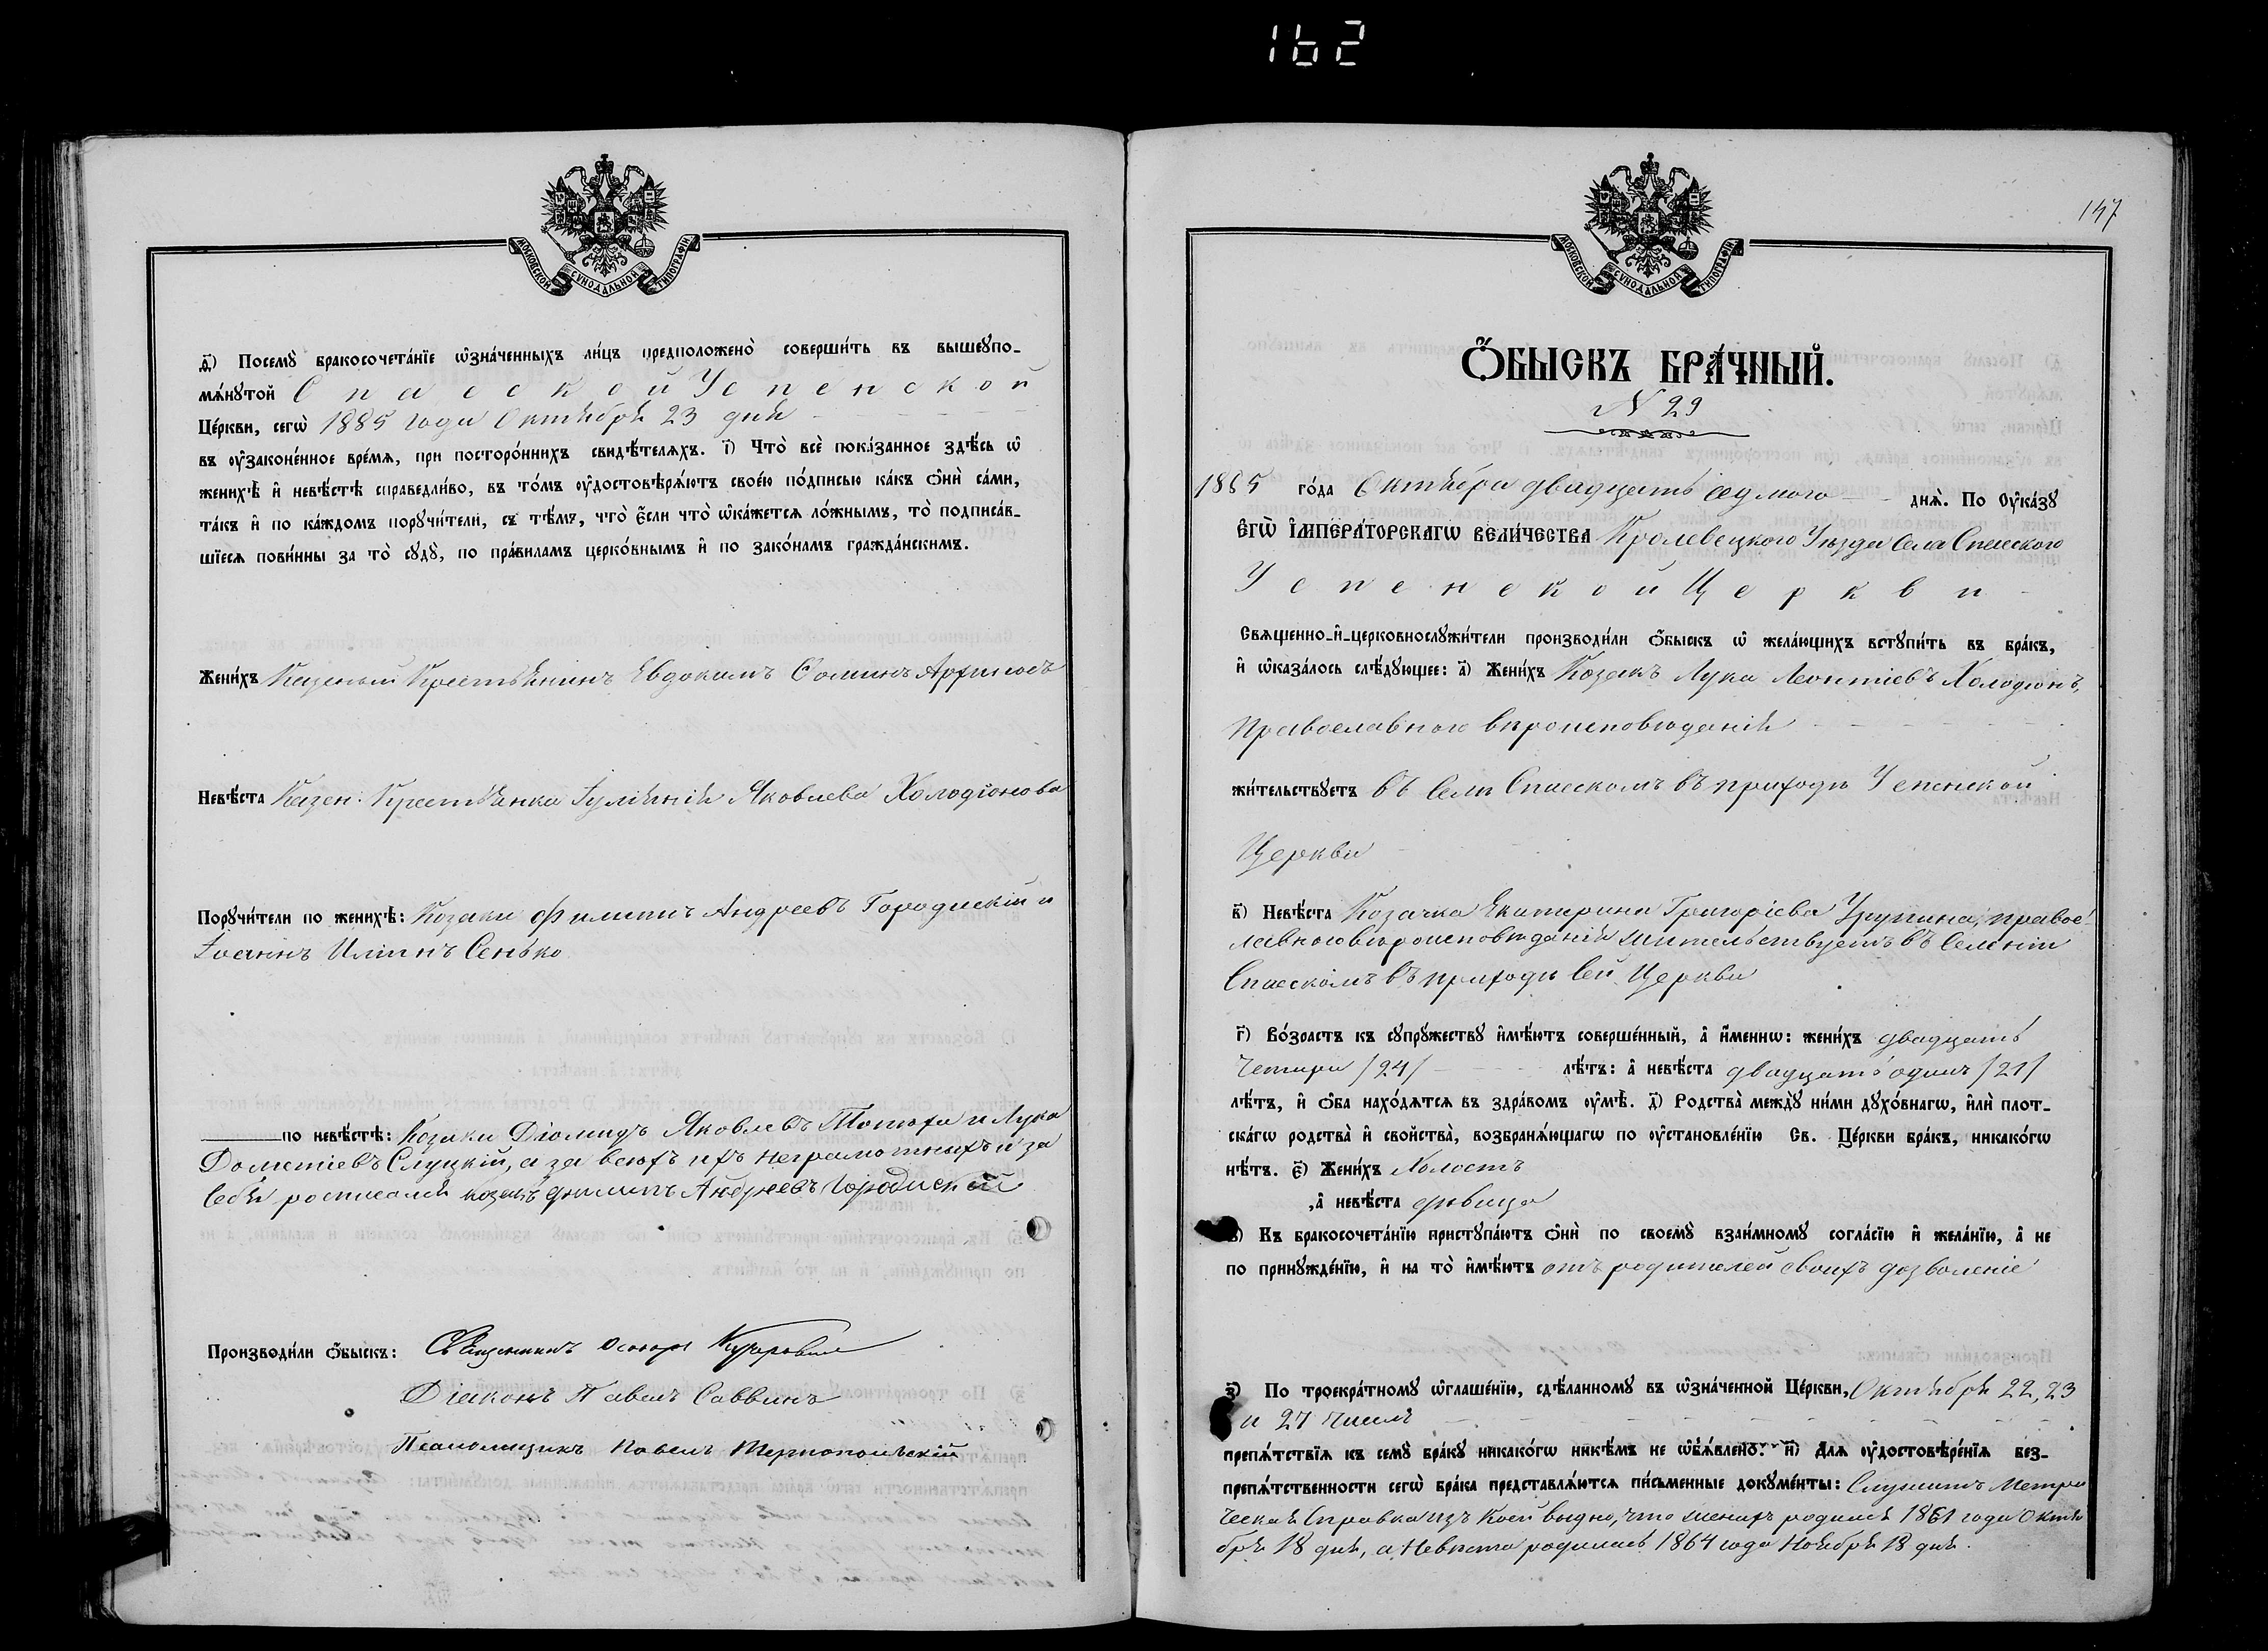 162
МОСКОВСКОЙ СѴНОДАЛЬНОЙ ТИПОГРАФІИ
д҃) Посемꙋ̀ бракосочета́нїе ѡ҆зна́ченныхъ ли́цъ предположено̀ соверши́ть въ вышеꙋпо-
мѧ́нꙋтой Спасской Успенской
Це́ркви, сегѡ̀ 1885 года Октября 23 дня
въ ᲂу҆законе́нное вре́мѧ, при посторо́ннихъ свидѣ́телѧхъ. і҃) Что̀ всѐ пока́занное здѣ́сь ѡ҆
женихѣ̀ и҆ невѣ́стѣ справедли́во, въ то́мъ ᲂу҆достовѣрѧ́ютъ свое́ю по́дписью ка́къ ѻ҆нѝ са́ми,
та́къ и҆ по ка́ждомъ порꙋчи́тели, съ тѣ́мъ, что̀ є҆́сли что̀ ѡ҆ка́жетсѧ ло́жнымъ, то̀ подписа́в-
шїесѧ пови́нны за то̀ сꙋдꙋ̀, по пра́виламъ церко́внымъ и҆ по зако́намъ гражда́нскимъ.
Жени́хъ Казеный Крестьянинъ Евдокимъ Фоминъ
Невѣ́ста Казен. Крестьянка Іуліянія Яковлева Холодіонова
Порꙋчи́тели по женихѣ̀: Козаки Филипъ Андреевъ Городискій и
Іоаннъ Илiинъ Сенько
по невѣ́стѣ: Козаки Діомидъ Яковлевъ и Лука
Дометіевъ Слуцкій, а за всехъ ихъ неграмотныхъ и за
себя росписался козакъ Филипъ Андреевъ Городиский
Производи́ли ѻ҆́быскъ: Священникъ
Діяконъ Павелъ Саввинъ
Псаломщикъ Павелъ Тернопольскій
147
МОСКОВСКОЙ СѴНОДАЛЬНОЙ ТИПОГРАФІИ
Ѻ҆́БЫСКЪ БРА́ЧНЫЙ.
N 29
1885 го́да Октября двадцать седмого днѧ̀. По ᲂу҆ка́зꙋ
Є҆гѡ̀ І҆мпера́торскагѡ Вели́чества Кролевецкого Уезда Села Спасского
Успенской Церкви
Свѧщенно-и҆-церковнослꙋжи́тели производи́ли ѻ҆́быскъ ѡ҆ жела́ющихъ встꙋпи́ть въ бра́къ,
и҆ ѡ҆каза́лось слѣ́дꙋющее: а҃) Жени́хъ Козакъ Лука Леонтіевъ Холодіонъ,
православного вероисповеданія
жи́тельствꙋетъ въ Селе Спасскомъ въ приходе Успенской
Церкви
в҃) Невѣ́ста Козачка Екатерина Григоріева правос-
лавного вероисповеданія жительствуетъ въ Селении
Спасскомъ въ приходе сей Церкви
г҃) Во́зрастъ къ сꙋпрꙋ́жествꙋ и҆мѣ́ютъ соверше́нный, а҆ и҆́меннѡ: жени́хъ двадцать
четыри /24/ лѣ́тъ: а҆ невѣ́ста двадцать одинъ /21/
лѣ́тъ, и҆ ѻ҆́ба нахо́дѧтсѧ въ здра́вомъ ᲂу҆мѣ̀. д҃) Родства̀ междꙋ̀ ни́ми дꙋхо́внагѡ, и҆лѝ плот-
ска́гѡ родства̀ и҆ свойства̀, возбранѧ́ющагѡ по ᲂу҆становле́нїю Св. Це́ркви бра́къ, никако́гѡ
нѣ́тъ. є҃) Жени́хъ Холостъ
,а҆ невѣ́ста девица
ѕ҃) Къ бракосочета́нїю пристꙋпа́ютъ ѻ҆нѝ по своемꙋ̀ взаи́мномꙋ согла́сїю и҆ жела́нїю, а҆ не
по принꙋжде́нїю, и҆ на то̀ и҆мѣ́ютъ отъ родителей своихъ дозволеніе
з҃) По троекра́тномꙋ ѡ҆глаше́нїю, сдѣ́ланномꙋ въ ѡ҆зна́ченной Це́ркви, Октября 22, 23
и 27 числъ
препѧ́тствїѧ къ семꙋ̀ бра́кꙋ никако́гѡ никѣ́мъ не ѡ҆б̾ѧ́влено. и҃) Длѧ ᲂу҆достовѣре́нїѧ без-
препѧ́тственности сегѡ̀ бра́ка представлѧ́ютсѧ пи́сьменные докꙋме́нты: Служитъ Метри
ческая Справка изъ коей видно, что женихъ родился 1861 года Октя
бря 18 дня, а Невеста родилась 1864 года Ноября 18 дня.